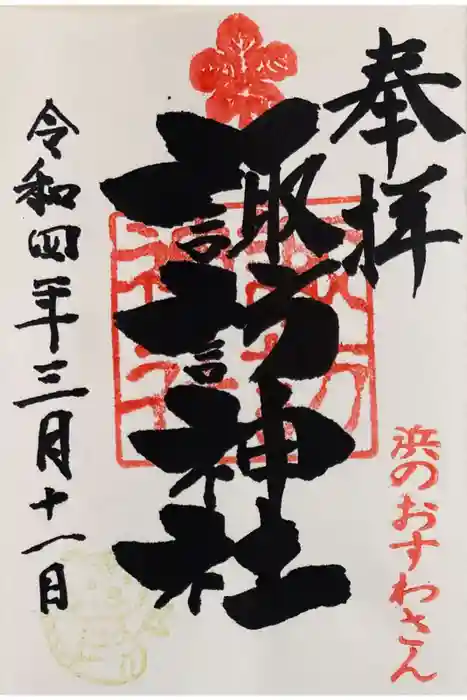 奉拝
諏訪神社
浜のおすわさん
令和四年三月十一日